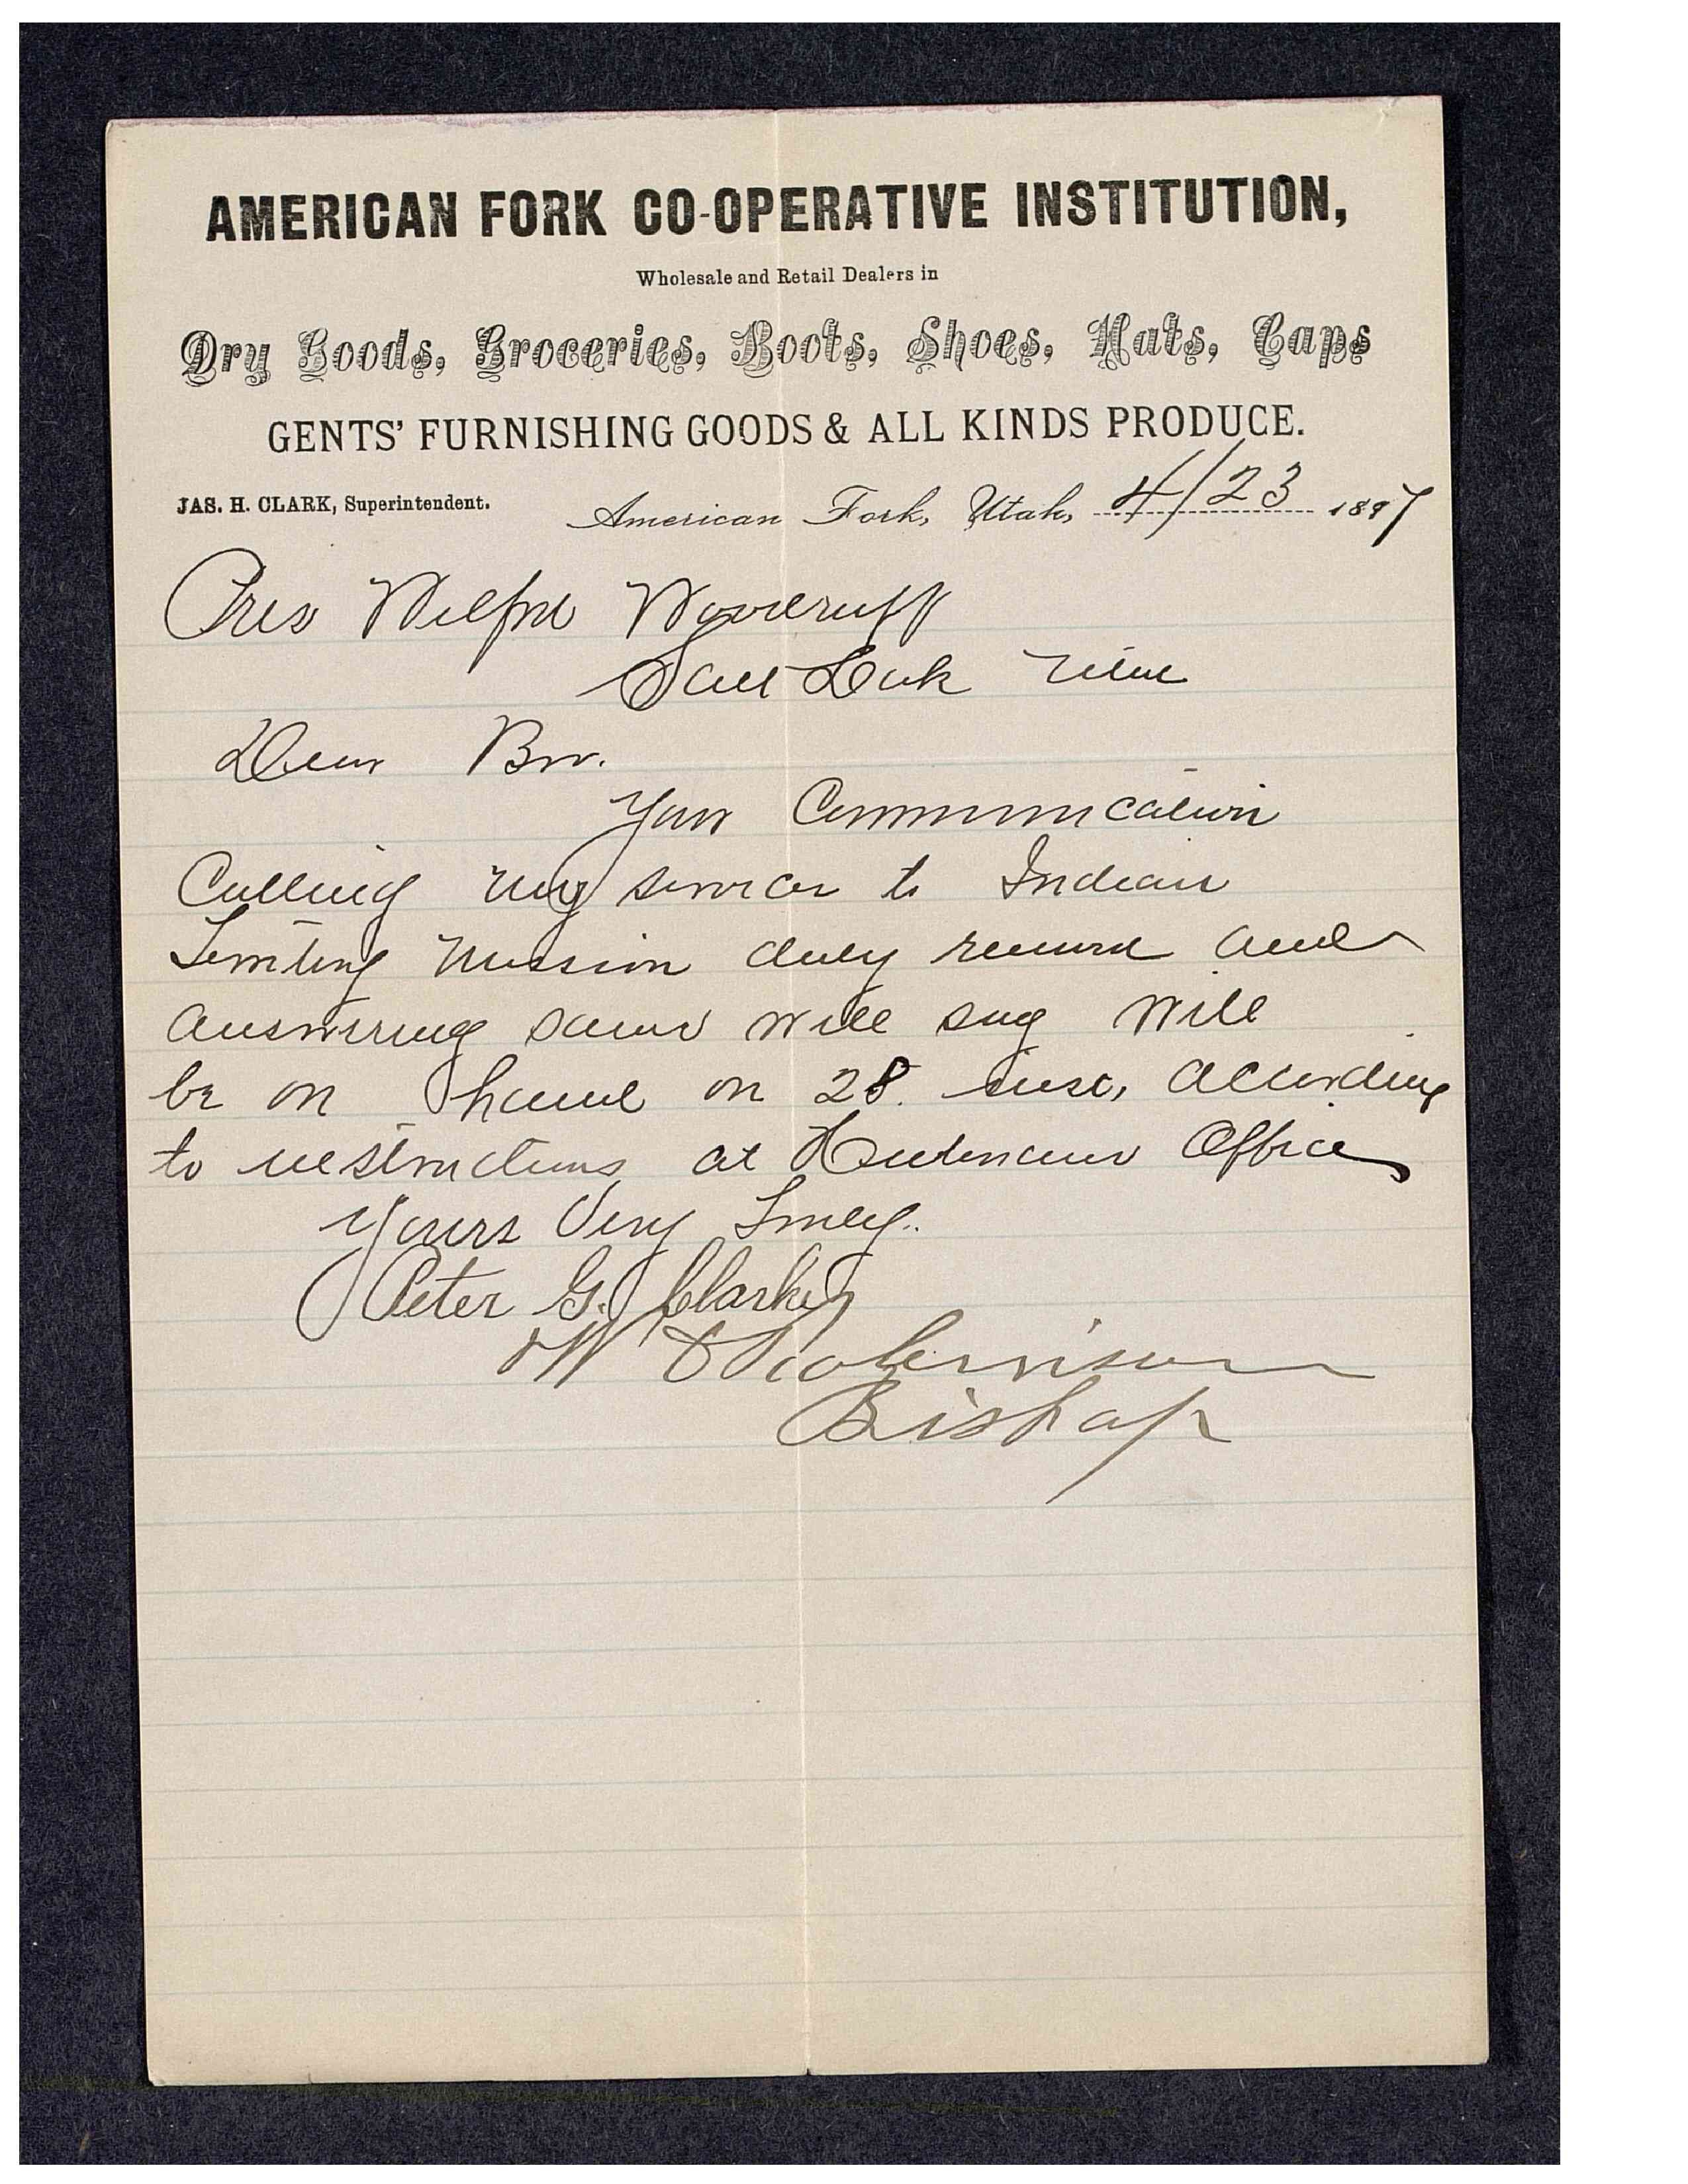 AMERICAN FORK CO-OPERATIVE INSTITUTION,
Wholesale and Retail Dealers in
Dry Goods, Groceries, Boots, Shoes, Hats, Caps
GENTS' FURNISHING GOODS & ALL KINDS PRODUCE.
JAS. H. CLARK, Superintendent. American Fork, Utah, 4/23 1897
Pres Wilford Woodruff
Salt Lake
Dear Bro.
Your Communication
Calling my services to Indian
Territory Mission duly received and
answering same will say will
be on hand on 28. inst, according
to instructions at Historians Office
Yours Very Truly.
Peter G. Clark
W D Robinson
Bishop